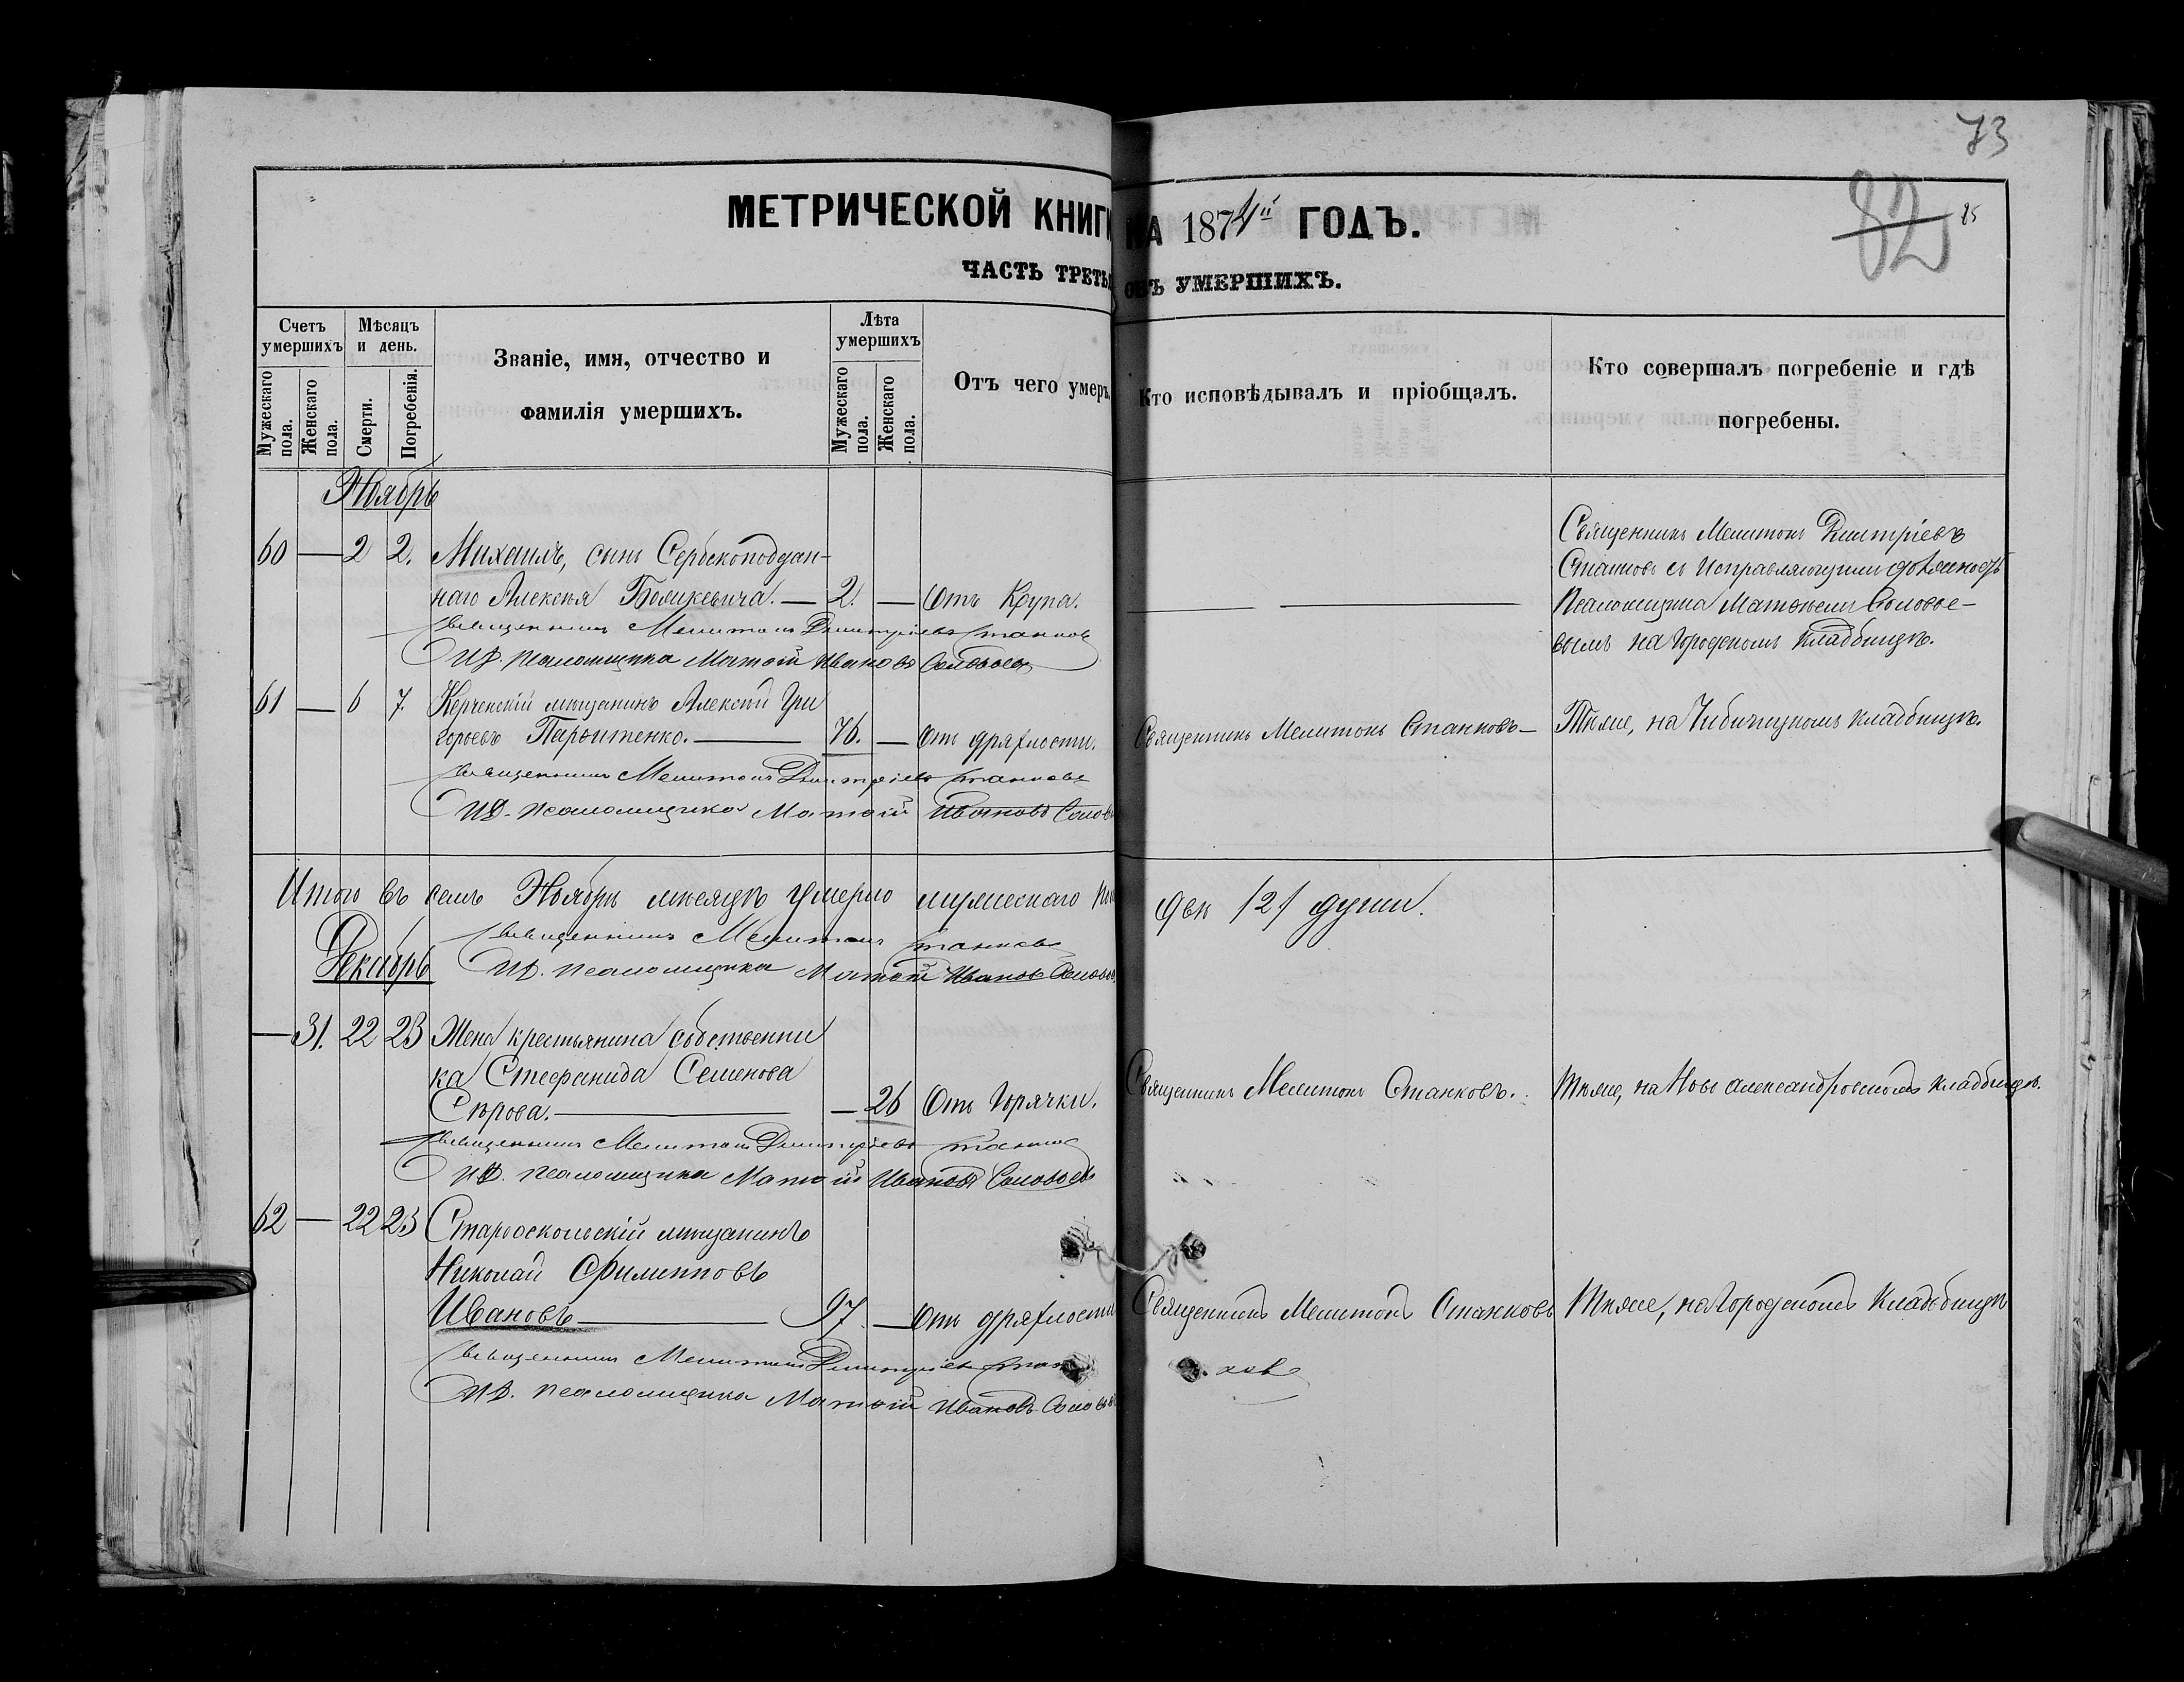 73
82
85
МЕТРИЧЕСКОЙ КНИГИ НА 1874й ГОДЪ.
ЧАСТЬ ТРЕТЬЯ ОБЪ УМЕРШИХЪ.
Счетъ умершихъ
Мѣсяцъ и день.
Званіе, имя, отчество и фамилія умершихъ.
Лѣта умершихъ
Отъ чего умеръ.
Кто исповѣдывалъ и пріобщалъ.
Кто совершалъ погребеніе и гдѣ погребены.
Мужескаго пола.
Женскаго пола.
Смерти.
Погребенія.
Мужескаго пола.
Женскаго пола.
Ноябрь
60 — 2 2. Михаилъ, сынъ Сербскоподдан-
наго Алексѣя — 2. — Отъ Крупа.
Священникъ Мелитонъ Дмитріевъ
Станковъ съ Исправляющимъ должность
Псаломщика Матѳеемъ Соловье-
вымъ на Городскомъ кладбищѣ.
Священникъ Мелитонъ Дмитріевъ Станковъ
И.Д. Псаломщика Матѳій Ивановъ Соловьевъ
61 — 6 7. Керченскій мѣщанинъ Алексѣй Гри
горьевъ — 76. — Отъ дряхлости. Священникъ Мелитонъ Станковъ — Тѣже, на кладбищѣ.
Священникъ Мелитонъ Дмитріевъ Станковъ
И.Д. Псаломщика Матѳій Ивановъ Солов
Итого въ семъ Ноябрѣ мѣсяцѣ умерло мужескаго двѣ /2/ души.
Священникъ Мелитонъ Станковъ
Декабрь И.Д. Псаломщика Матѳій Ивановъ Соловьев
— 31. 22 23 Жена крестьянина собственни
ка Стефанида Семенова
Сѣрова. — 26 Отъ Горячки. Священникъ Мелитонъ Станковъ. Тѣже, на Ново Александровскомъ кладбищѣ.
Священникъ Мелитонъ Дмитріевъ Станков
И.Д. Псаломщика Матѳій Ивановъ Соловьевъ
62 — 22 23 Старооскольскій мѣщанинъ
Николай Филипповъ
Ивановъ — 97. — Отъ дряхлости Священникъ Мелитонъ Станковъ Тѣже, на Городскомъ Кладбищѣ
Священникъ Мелитонъ Дмитріев Стан ковъ
И.Д. Псаломщика Матѳій Ивановъ Соловье